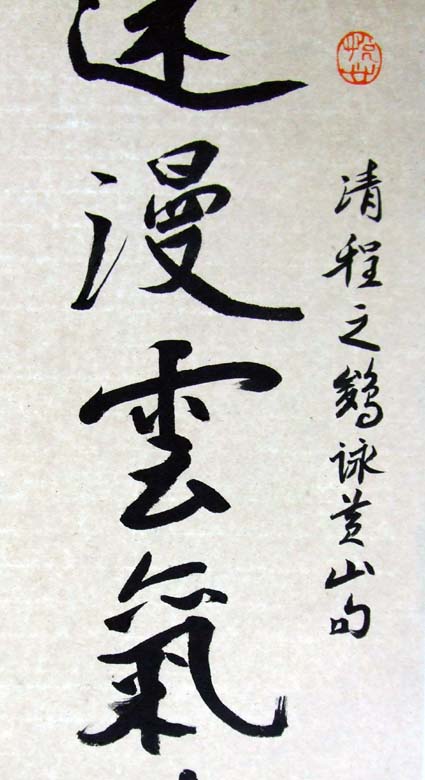 清程之鵕詠黄山句
迷漫雲氣